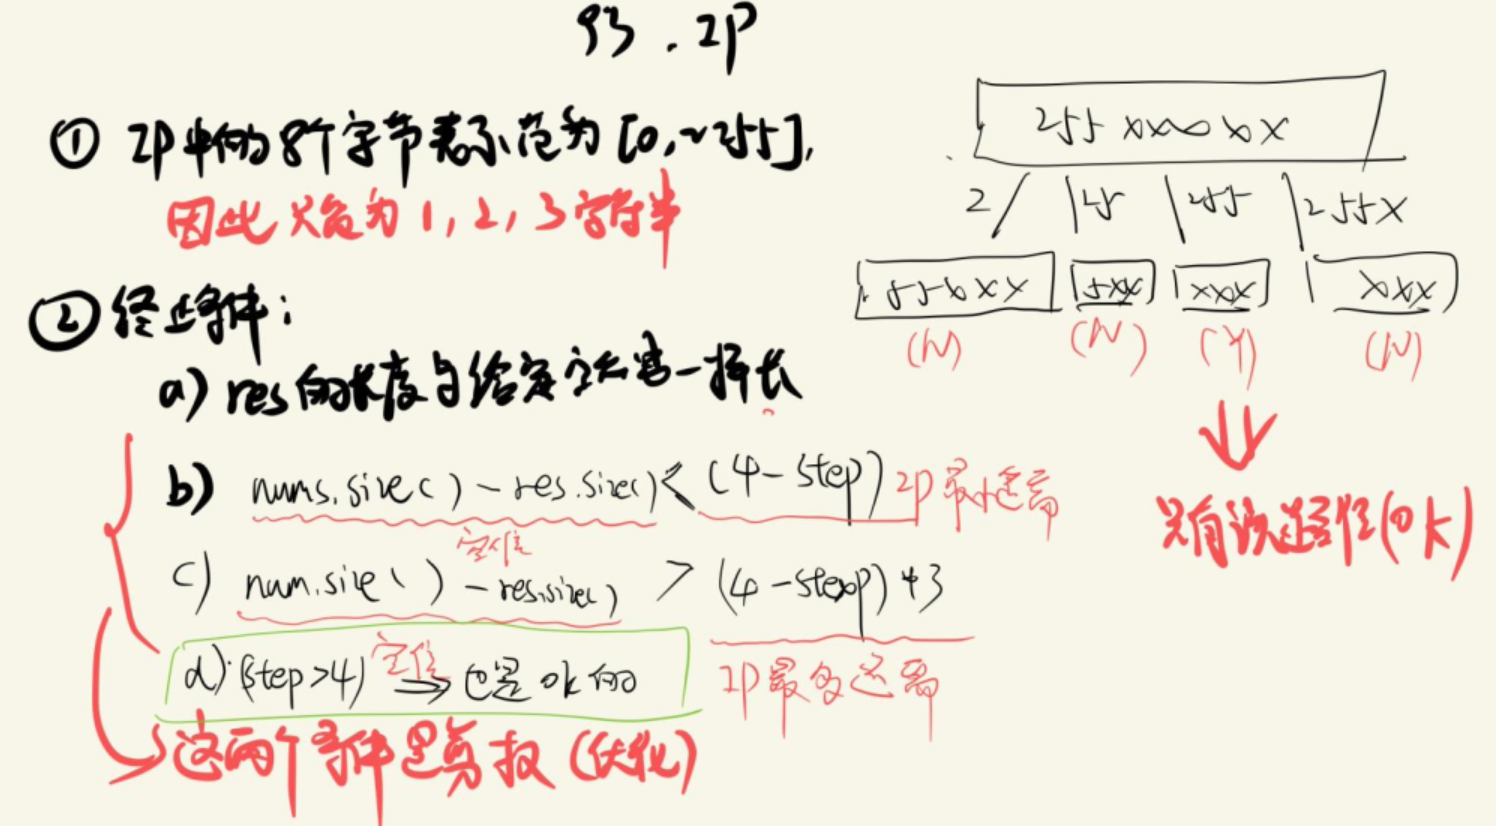 93. IP
① IP中的8个字节表示范为[0,~255],
因此 为 1, 2, 3 字符串
② 终止条件:
a) res的长度与给定 一样长
b) nums.size() - res.size() < (4-step) IP最小
c) num.size() - res.size() > (4-step)*3
d) (step>4) 也是ok的
IP最多
这两个条件是剪枝 (优化)
255xxxxxx
2 / |25 |255 |255x
55xxxx 5xxx xxx xxx
(N) (N) (Y) (N)
只有该路径(ok)